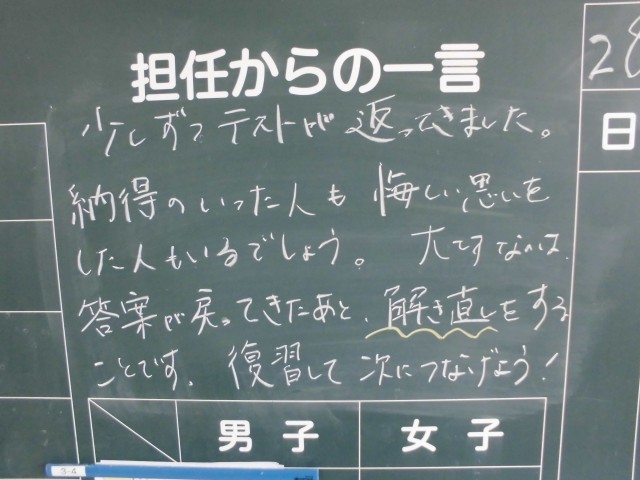 担任からの一言
少しずつテストが返ってきました。
納得のいった人も悔しい思いを
した人もいるでしょう。 大切なのは、
答案が戻ってきたあと、解き直しをする
ことです。復習して次につなげよう!
男子 女子
28
日
3-4